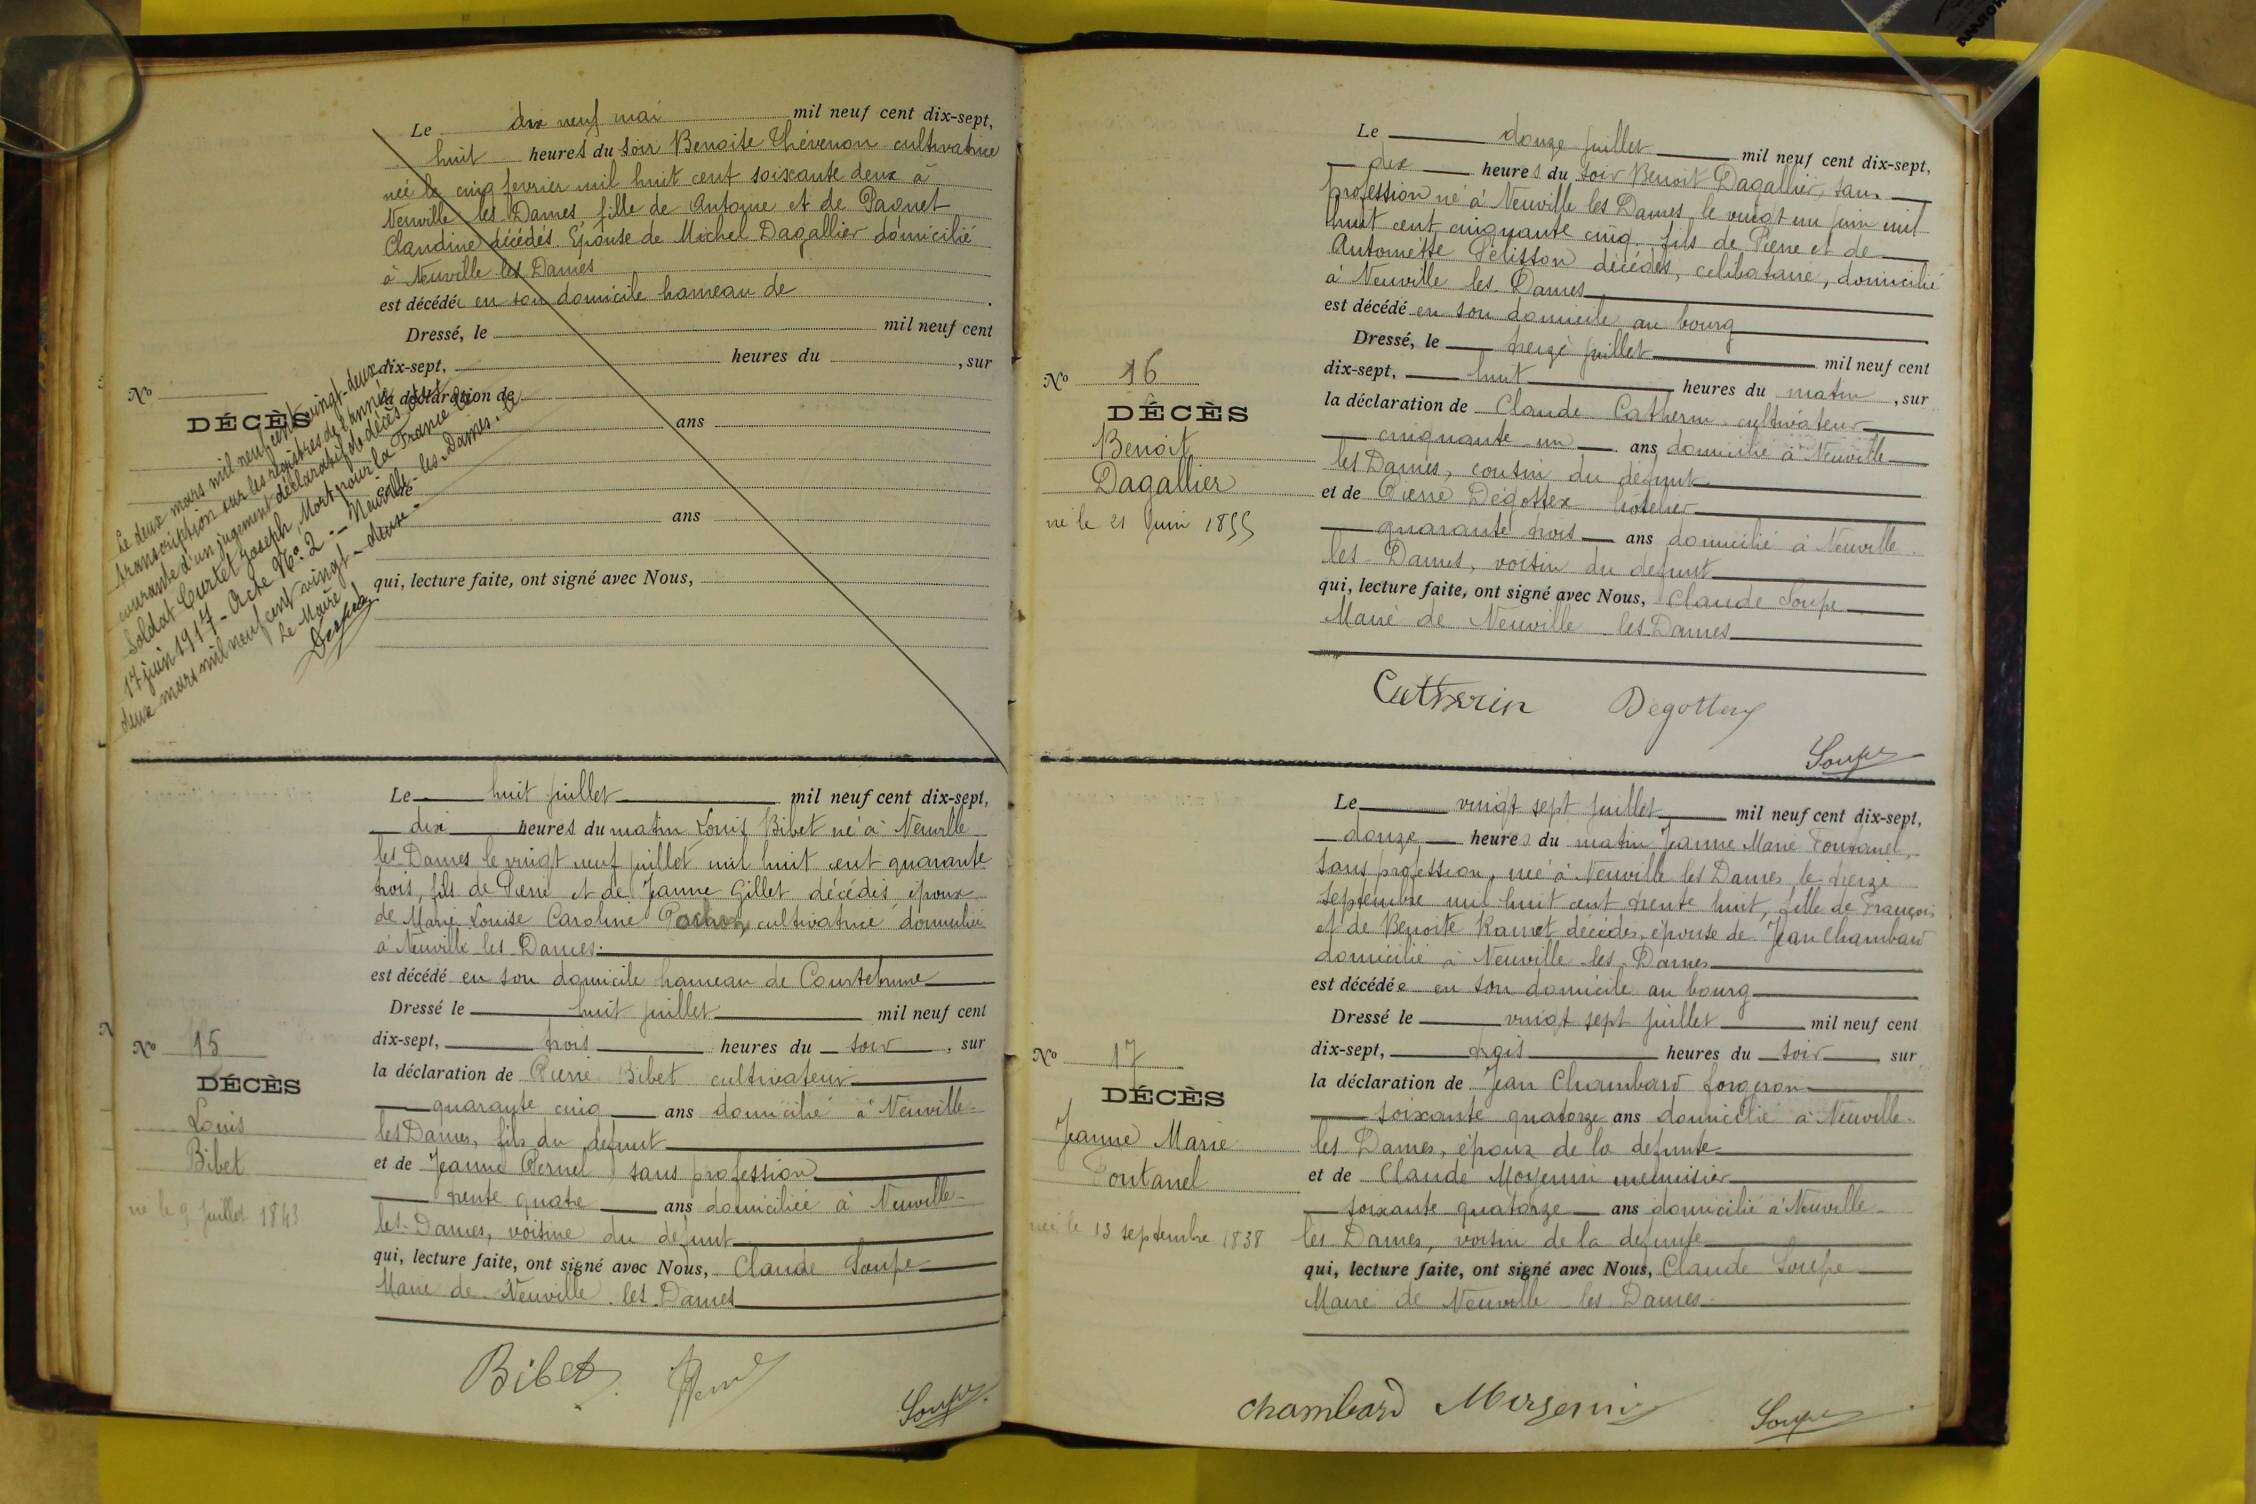 Le dix neuf mai mil neuf cent dix-sept,
huit heures du soir Benoite Thévenon cultivatrice
née le cinq fevrier mil huit cent soixante deux à
Neuville les Dames, fille de Antoine et de Paquet
Claudine décédés. Epouse de Michel Dagallier domicilié
à Neuville les Dames
est décédée en son domicile hameau de
Dressé, le mil neuf cent
dix-sept, heures du , sur
la déclaration de
ans
et de
ans
qui, lecture faite, ont signé avec Nous,
No
DÉCÈS
Le deux mars mil neuf cent vingt-deux,
transcription sur les registres de l'année
courante d'un jugement déclaratif de décès du
soldat Curtet Joseph, Mort pour la France le
17 juin 1917 - Acte No. 2 - Neuville-les-Dames, le
deux mars mil neuf cent vingt-deux.
Le Maire,
Le huit juillet mil neuf cent dix-sept,
dix heures du matin Louis Bibet né à Neuville
les Dames le vingt neuf juillet mil huit cent quarante
trois, fils de Pierre et de Jeanne Gillet décédés, époux
de Marie Louise Caroline Pochon, cultivatrice domiciliée
à Neuville les Dames
est décédé en son domicile hameau de Courtebrune
Dressé le huit juillet mil neuf cent
dix-sept, trois heures du soir , sur
la déclaration de Pierre Bibet cultivateur
quarante cinq ans domicilié à Neuville
les Dames, fils du défunt
et de Jeanne Pernel sans profession
trente quatre ans domiciliée à Neuville
les-Dames, voisine du défunt
qui, lecture faite, ont signé avec Nous, Claude Soupe
Maire de Neuville les Dames
No 15
DÉCÈS
Louis
Bibet
né le 9 juillet 1843
Bibet
Soupe
Le douze juillet mil neuf cent dix-sept,
dix heures du soir Benoit Dagallier, sans
profession né à Neuville les Dames le vingt un juin mil
huit cent cinquante cinq, fils de Pierre et de
Antoinette Pelisson décédés, célibataire, domicilié
à Neuville les Dames
est décédé en son domicile au bourg
Dressé, le treize juillet mil neuf cent
dix-sept, huit heures du matin , sur
la déclaration de Claude Catherin cultivateur
cinquante un ans domicilié à Neuville
les Dames, cousin du défunt
et de Pierre Degottex hôtelier
quarante trois ans domicilié à Neuville
les Dames, voisin du defunt
qui, lecture faite, ont signé avec Nous, Claude Soupe
Maire de Neuville les Dames
No 16
DÉCÈS
Benoit
Dagallier
né le 21 Juin 1855
Catherin Degottex
Soupe
Le vingt sept juillet mil neuf cent dix-sept,
douze heures du matin Jeanne Marie Fontanel,
sans profession, née à Neuville les Dames le treize
septembre mil huit cent trente huit, fille de François
et de Benoite Ramet décédés, épouse de Jean Chambard
domicilié à Neuville les Dames
est décédée en son domicile au bourg
Dressé le vingt sept juillet mil neuf cent
dix-sept, trois heures du soir , sur
la déclaration de Jean Chambard forgeron
soixante quatorze ans domicilié à Neuville
les Dames, époux de la défunte
et de Claude Moyenin menuisier
soixante quatorze ans domicilié à Neuville
les Dames, voisin de la defunte
qui, lecture faite, ont signé avec Nous, Claude Soupe
Maire de Neuville les Dames
No 17
DÉCÈS
Jeanne Marie
Fontanel
née le 13 septembre 1838
chambard
Soupe